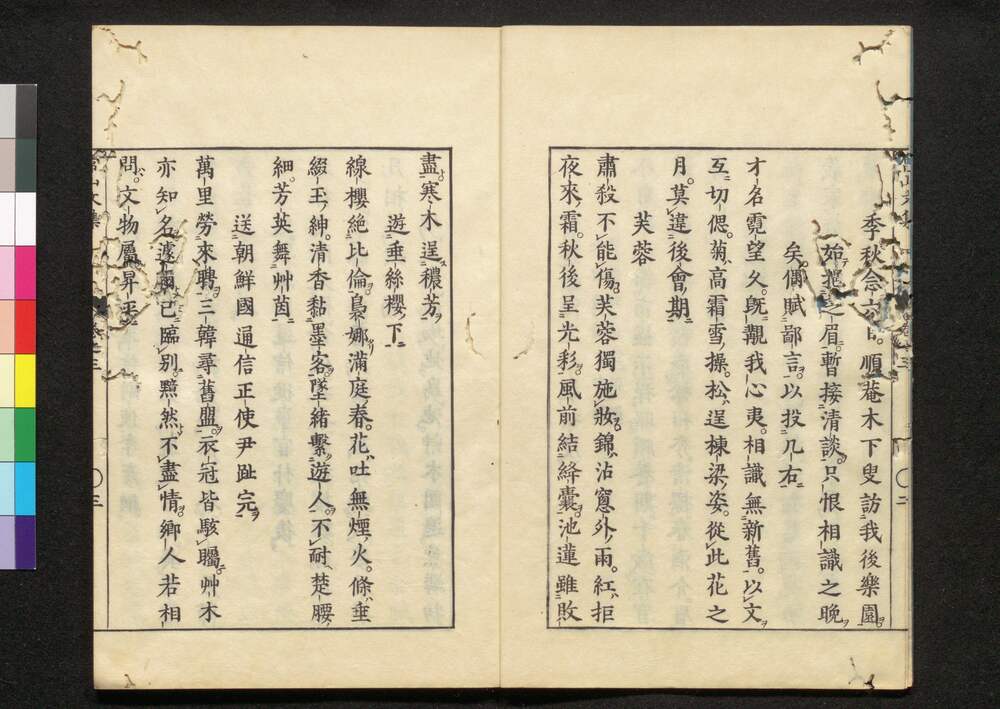 季秋念六日順菴木下叟訪我後樂園
始挹芝眉暫接清談只恨相識之晚
矣偶賦鄙言以投几右
才名霓望久既覯我心夷相識無新舊以文
互切偲菊高霜雪操松逞棟梁姿從此花之
月莫違後會期
芙蓉
肅殺不能傷芙蓉獨施妝錦沾窓外雨紅拒
夜來霜秋後呈光彩風前結絳囊池蓮雖敗
盡寒木逞穠芳
遊垂絲櫻下
線櫻絶比倫裊娜滿庭春花吐無煙火條垂
綴玉紳清香黏墨客墜緒繫遊人不耐楚腰
細芳英舞艸茵
送朝鮮國通信正使尹趾完
萬里勞來聘三韓尋舊盟衣冠皆駭矚艸木
亦知名遽爾已臨別黯然不盡情鄉人若相
問文物屬昇平